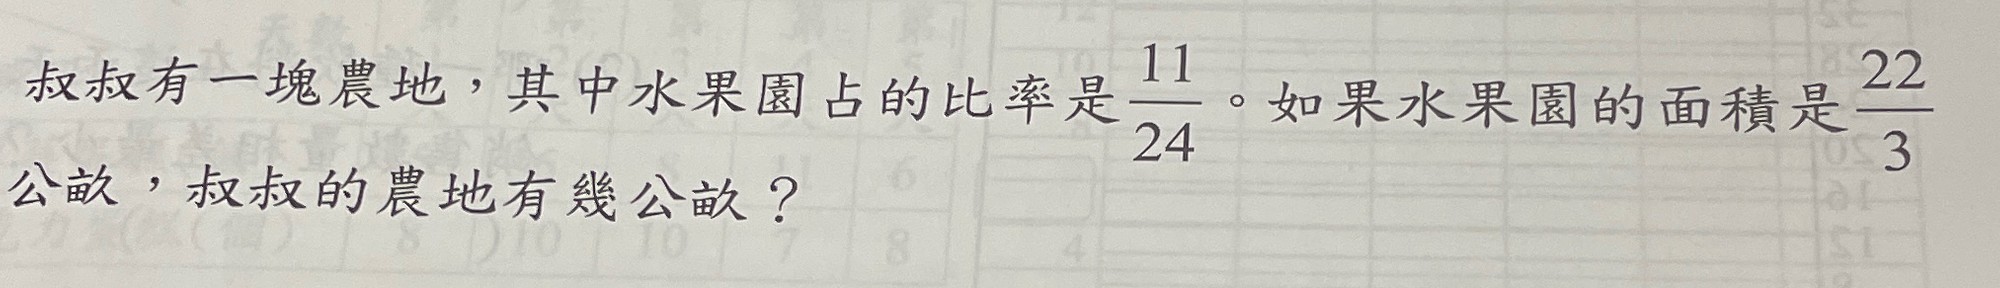 叔叔有一塊農地，其中水果園占的比率是11/24。如果水果園的面積是22/3
公畝，叔叔的農地有幾公畝？